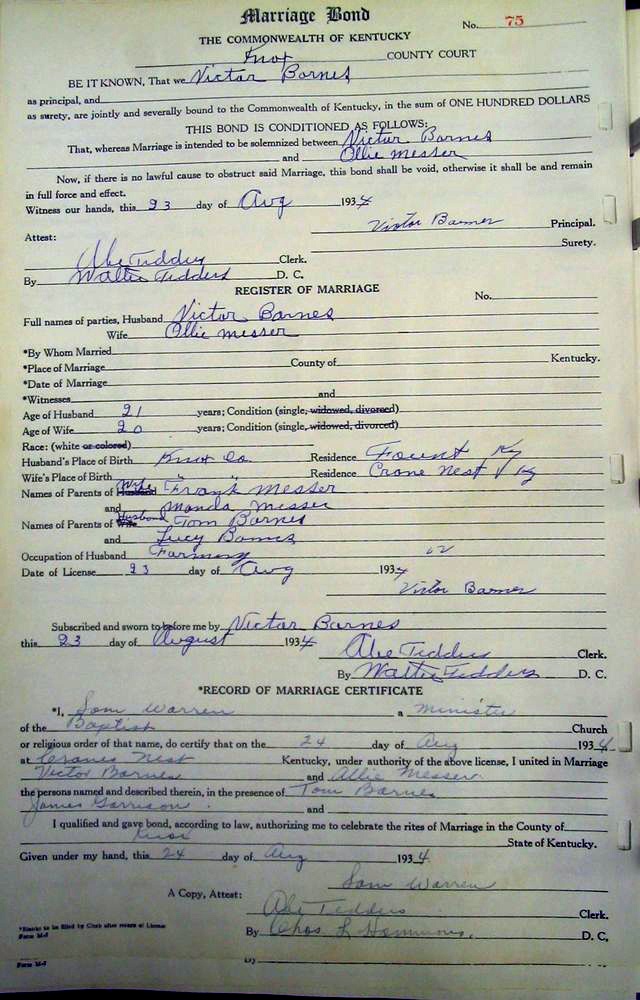 Marriage Bond
No. 75
THE COMMONWEALTH OF KENTUCKY
Knox COUNTY COURT
BE IT KNOWN, That we Victor Barnes
as principal, and
as surety, are jointly and severally bound to the Commonwealth of Kentucky, in the sum of ONE HUNDRED DOLLARS
THIS BOND IS CONDITIONED AS FOLLOWS:
That, whereas Marriage is intended to be solemnized between Victor Barnes
and Ollie Messer
Now, if there is no lawful cause to obstruct said Marriage, this bond shall be void, otherwise it shall be and remain
in full force and effect.
Witness our hands, this 23 day of Aug 1934
Victor Barner Principal.
Attest: Surety.
Abe Tedders Clerk.
By Walter Tedders D. C.
REGISTER OF MARRIAGE
No.
Full names of parties, Husband Victor Barnes
Wife Ollie Messer
*By Whom Married
*Place of Marriage County of Kentucky.
*Date of Marriage
*Witnesses and
Age of Husband 21 years; Condition (single, widowed, divorced)
Age of Wife 20 years; Condition (single, widowed, divorced)
Race: (white or colored)
Husband's Place of Birth Knox Co Residence Fount Ky
Wife's Place of Birth " Residence Crane Nest Ky
Names of Parents of Husband Wife Frank Messer
and Manda Messer
Names of Parents of Wife Husband Tom Barnes
and Lucy Barnes
Occupation of Husband Farming
Date of License 23 day of Aug 1934
Victor Barner
Subscribed and sworn to before me by Victor Barnes
this 23 day of August 1934
Abe Tedders Clerk.
By Walter Tedders D. C.
*RECORD OF MARRIAGE CERTIFICATE
*I, Sam Warren a Minister
of the Baptist Church
or religious order of that name, do certify that on the 24 day of Aug 1934
at Cranes Nest Kentucky, under authority of the above license, I united in Marriage
Victor Barnes and Allie Messer.
the persons named and described therein, in the presence of Tom Barnes
James Garrison. and
I qualified and gave bond, according to law, authorizing me to celebrate the rites of Marriage in the County of
Knox State of Kentucky.
Given under my hand, this 24 day of Aug 1934
Sam Warren
A Copy, Attest:
Abe Tedders Clerk.
By Chas. L. Hammons. D. C.
*Blanks to be filled by Clerk after return of License
Form M-7
Form M-7
By